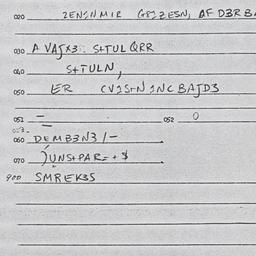 020 ZENSNMIR G8ZZESN, AF D3RBA
030 A VAJX3. S+TULQRR
040 S+TULN,
050 ER CV2S+N 2NCBAJD3
051 = 052 0
053
060 DEMB3N3 /-
070 JUNS+PAR= + $
900 SMREK3S